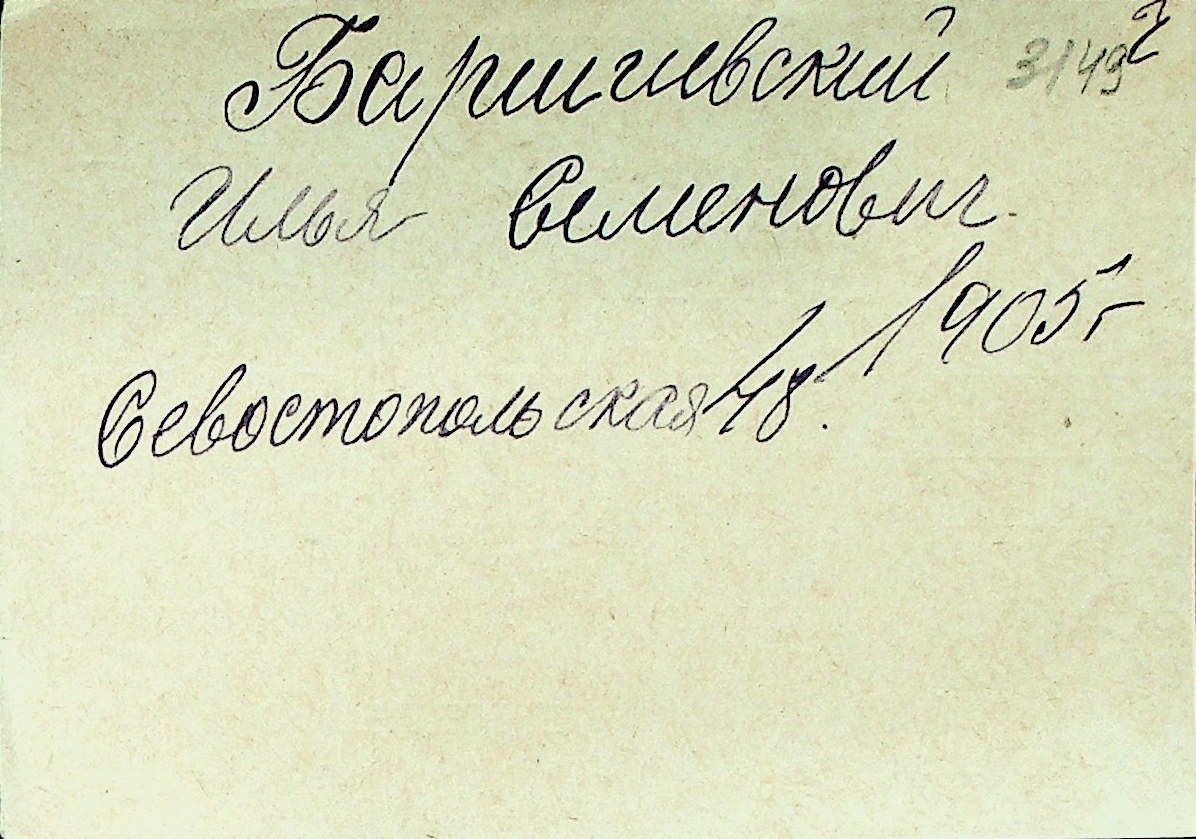 Баршчевский 3149
Илья Семенович.
1905 г
Севостопольская 48.